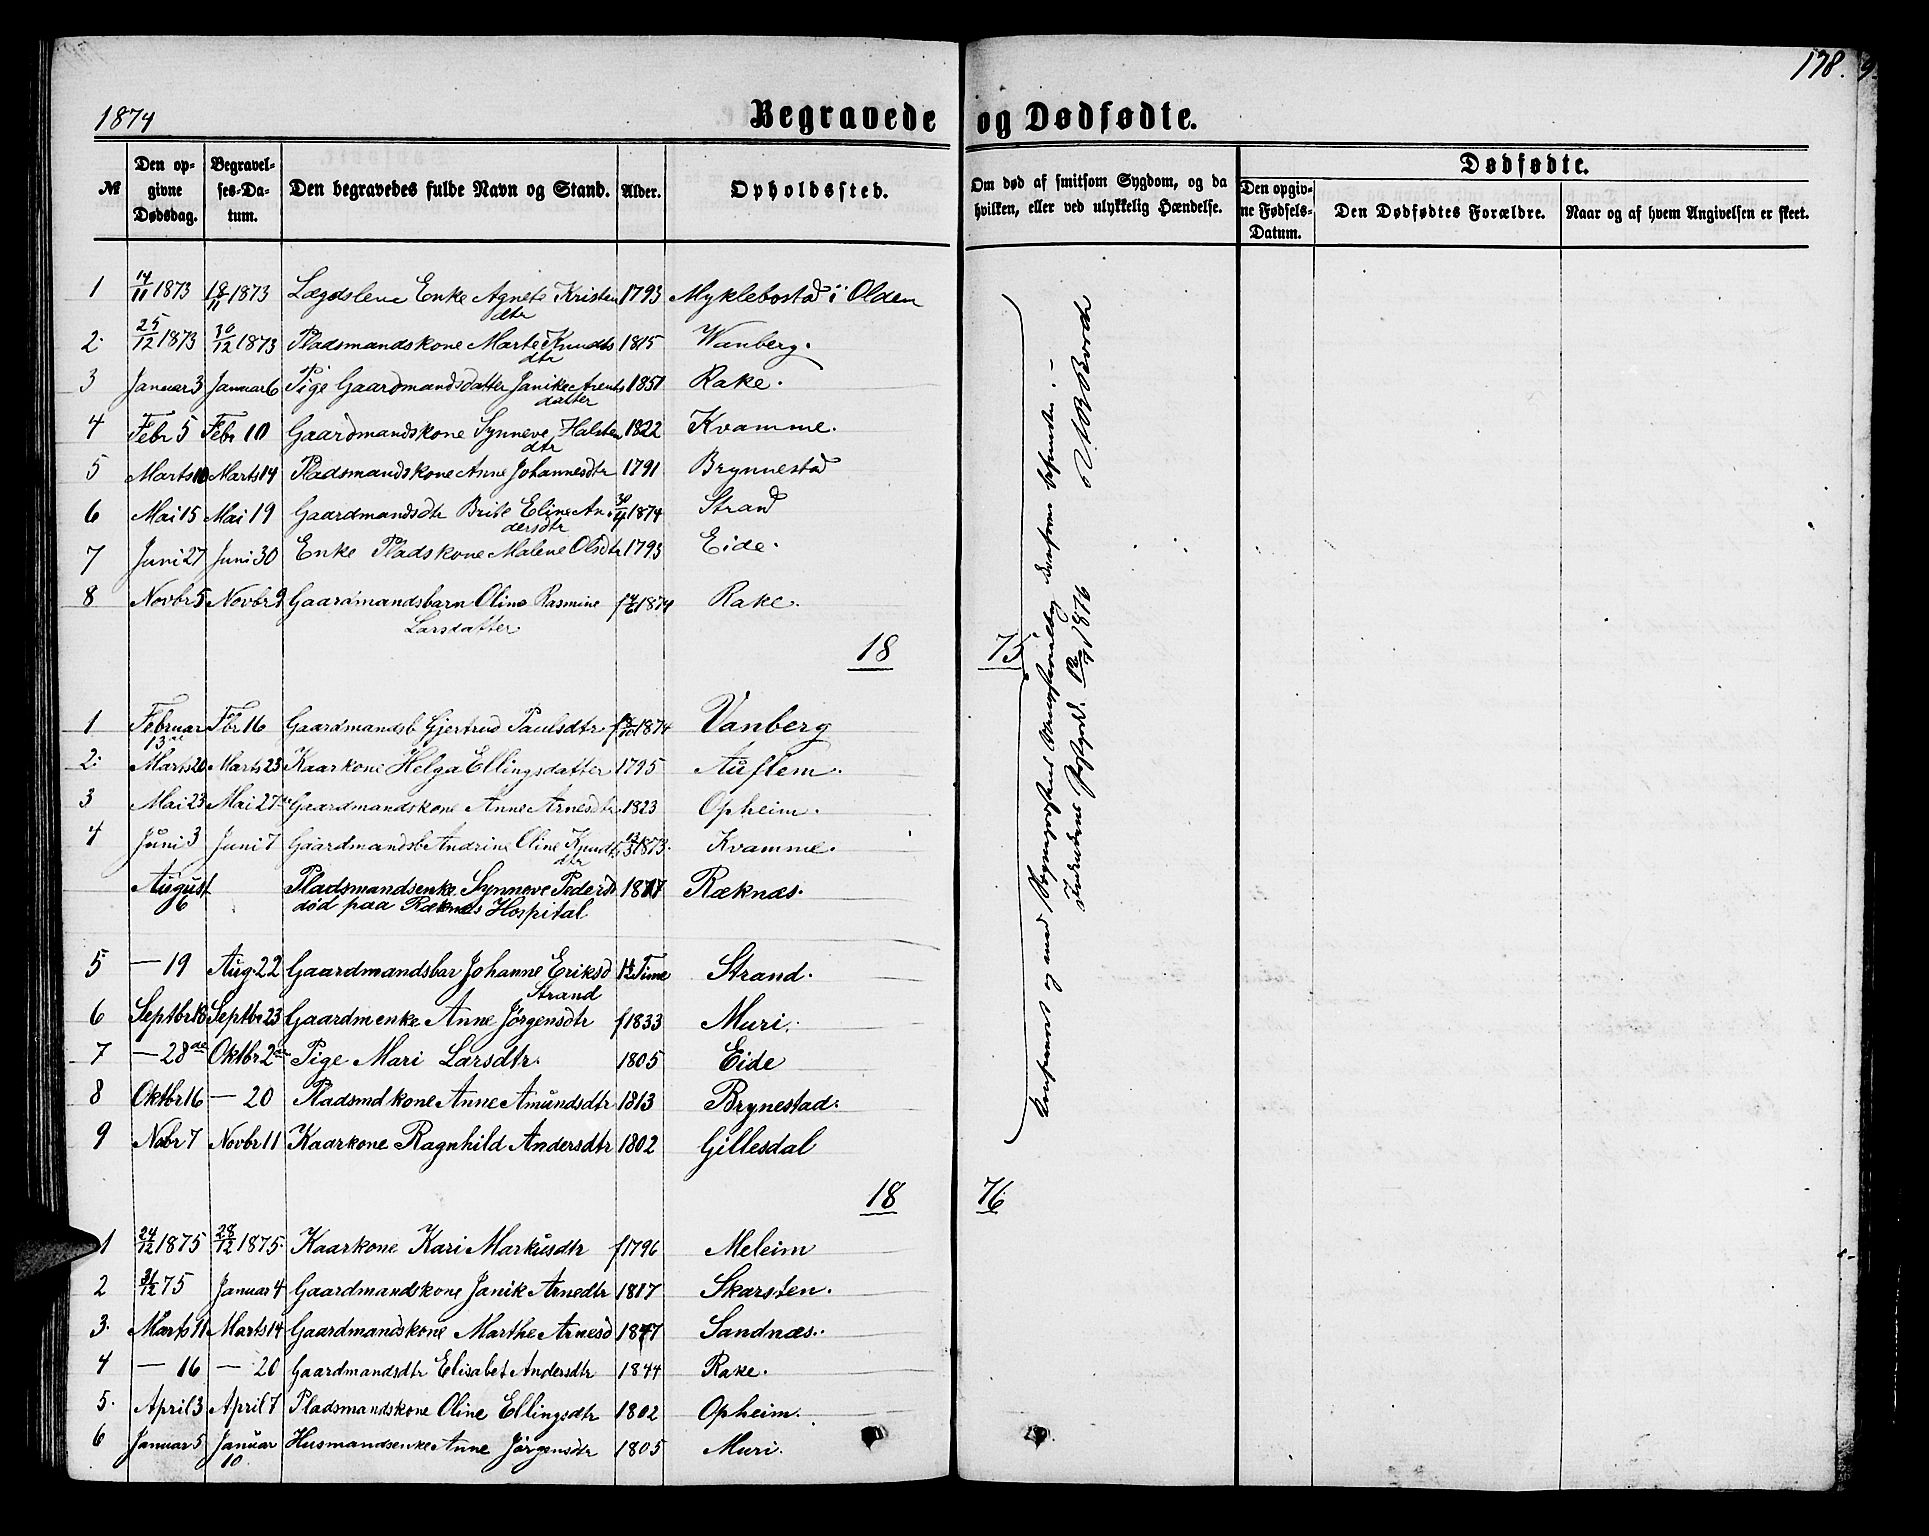 178.
1874
Begravede og Dødfødte.
№ Den opgivne Dødsdag. Begravelses-Datum. Den begravedes fulde Navn og Stand. Alder. Opholdssted. Om død af smitsom Sygdom, og da hvilken, eller ved ulykkelig Hændelse. Dødfødte.
Den opgivne Fødsels-Datum. Den Dødfødtes Forældre. Naar og af hvem Angivelsen er skeet.
1 14/11 1873 18/11 1873 Lægdslem Enke Agnete Kristendtr 1793 Myklebostad i Olden
2. 25/12 1873 30/12 1873 Pladsmandskone Marte Knudtsdtr 1815 Wanberg.
3 Januar 3 Januar 6 Pige Gaardmandsdatter Janike Arentsdatter 1851 Rake.
4 Febr 5 Febr 10 Gaardmandskone Synneve Halstendtr 1822 Kvamme.
5 Marts 10 Marts 14 Pladsmandskone Anne Johannesdtr 1791 Brynnestad
6 Mai 15 Mai 19 Gaardmandsdtr Brite Eline Andersdtr 30/4 1874 Strand
7 Juni 27 Juni 30 Enke Pladskone Malene Olsdtr 1793 Eide.
8 Novbr 5 Novbr 9 Gaardmandsbarn Oline Rasmine Larsdatter 1874 Rake.
18 75
1 Februar 13de Fbr 16 Gaardmandsb Gjertrud Paulsdtr 1874 Vanberg
2. Marts 20 Marts 23 Kaarkone Helga Ellingsdatter 1795 Auflem.
3 Mai 23 Mai 27 Gaardmandskone Anne Arnesdtr 1823 Opheim.
4 Juni 3 Juni 7 Gaardmandsb Andrine Oline Knudtsdtr 13/3 1873. Kvamme.
August 6 Pladsmandsenke Synneve Pedersd 1817 Ræknæs.
død paa Reknæs Hospital
5 — 19 Aug. 22 Gaardmandsbar Johanne Eriksd Strand Time Strand.
6 Septbr 18 Septbr 23 Gaardmenke Anne Jørgensdtr f 1833 Muri.
7 — 28de Oktbr 2 Pige Mari Larsdtr. 1805 Eide
8 Oktbr 16 — 20 Pladsmdkone Anne Amundsdtr 1813 Brynestad.
9 Nobr 7 Novbr 11 Kaarkone Ragnhild Andersdtr 1802 Gillesdal
18 76
1 24/12 1875 28/12 1875. Kaarkone Kari Markusdtr f 1796 Meleim
2 31/12 75 Januar 4 Gaardmandskone Janik Arnedtr 1817 Skarsten.
3. Marts 11 Marts 14 Gaardmandskone Marthe Arnesd 1847 Sandnæs.
4 — 16 — 20 Gaardmandsdtr Elisabet Andersdtr 1844 Rake.
5. April 3 April 7 Pladsmandskone Oline Ellingsdtr 1802 Opheim.
6 Januar 5 Januar 10 Husmandsenke Anne Jørgensdtr 1805 Muri.